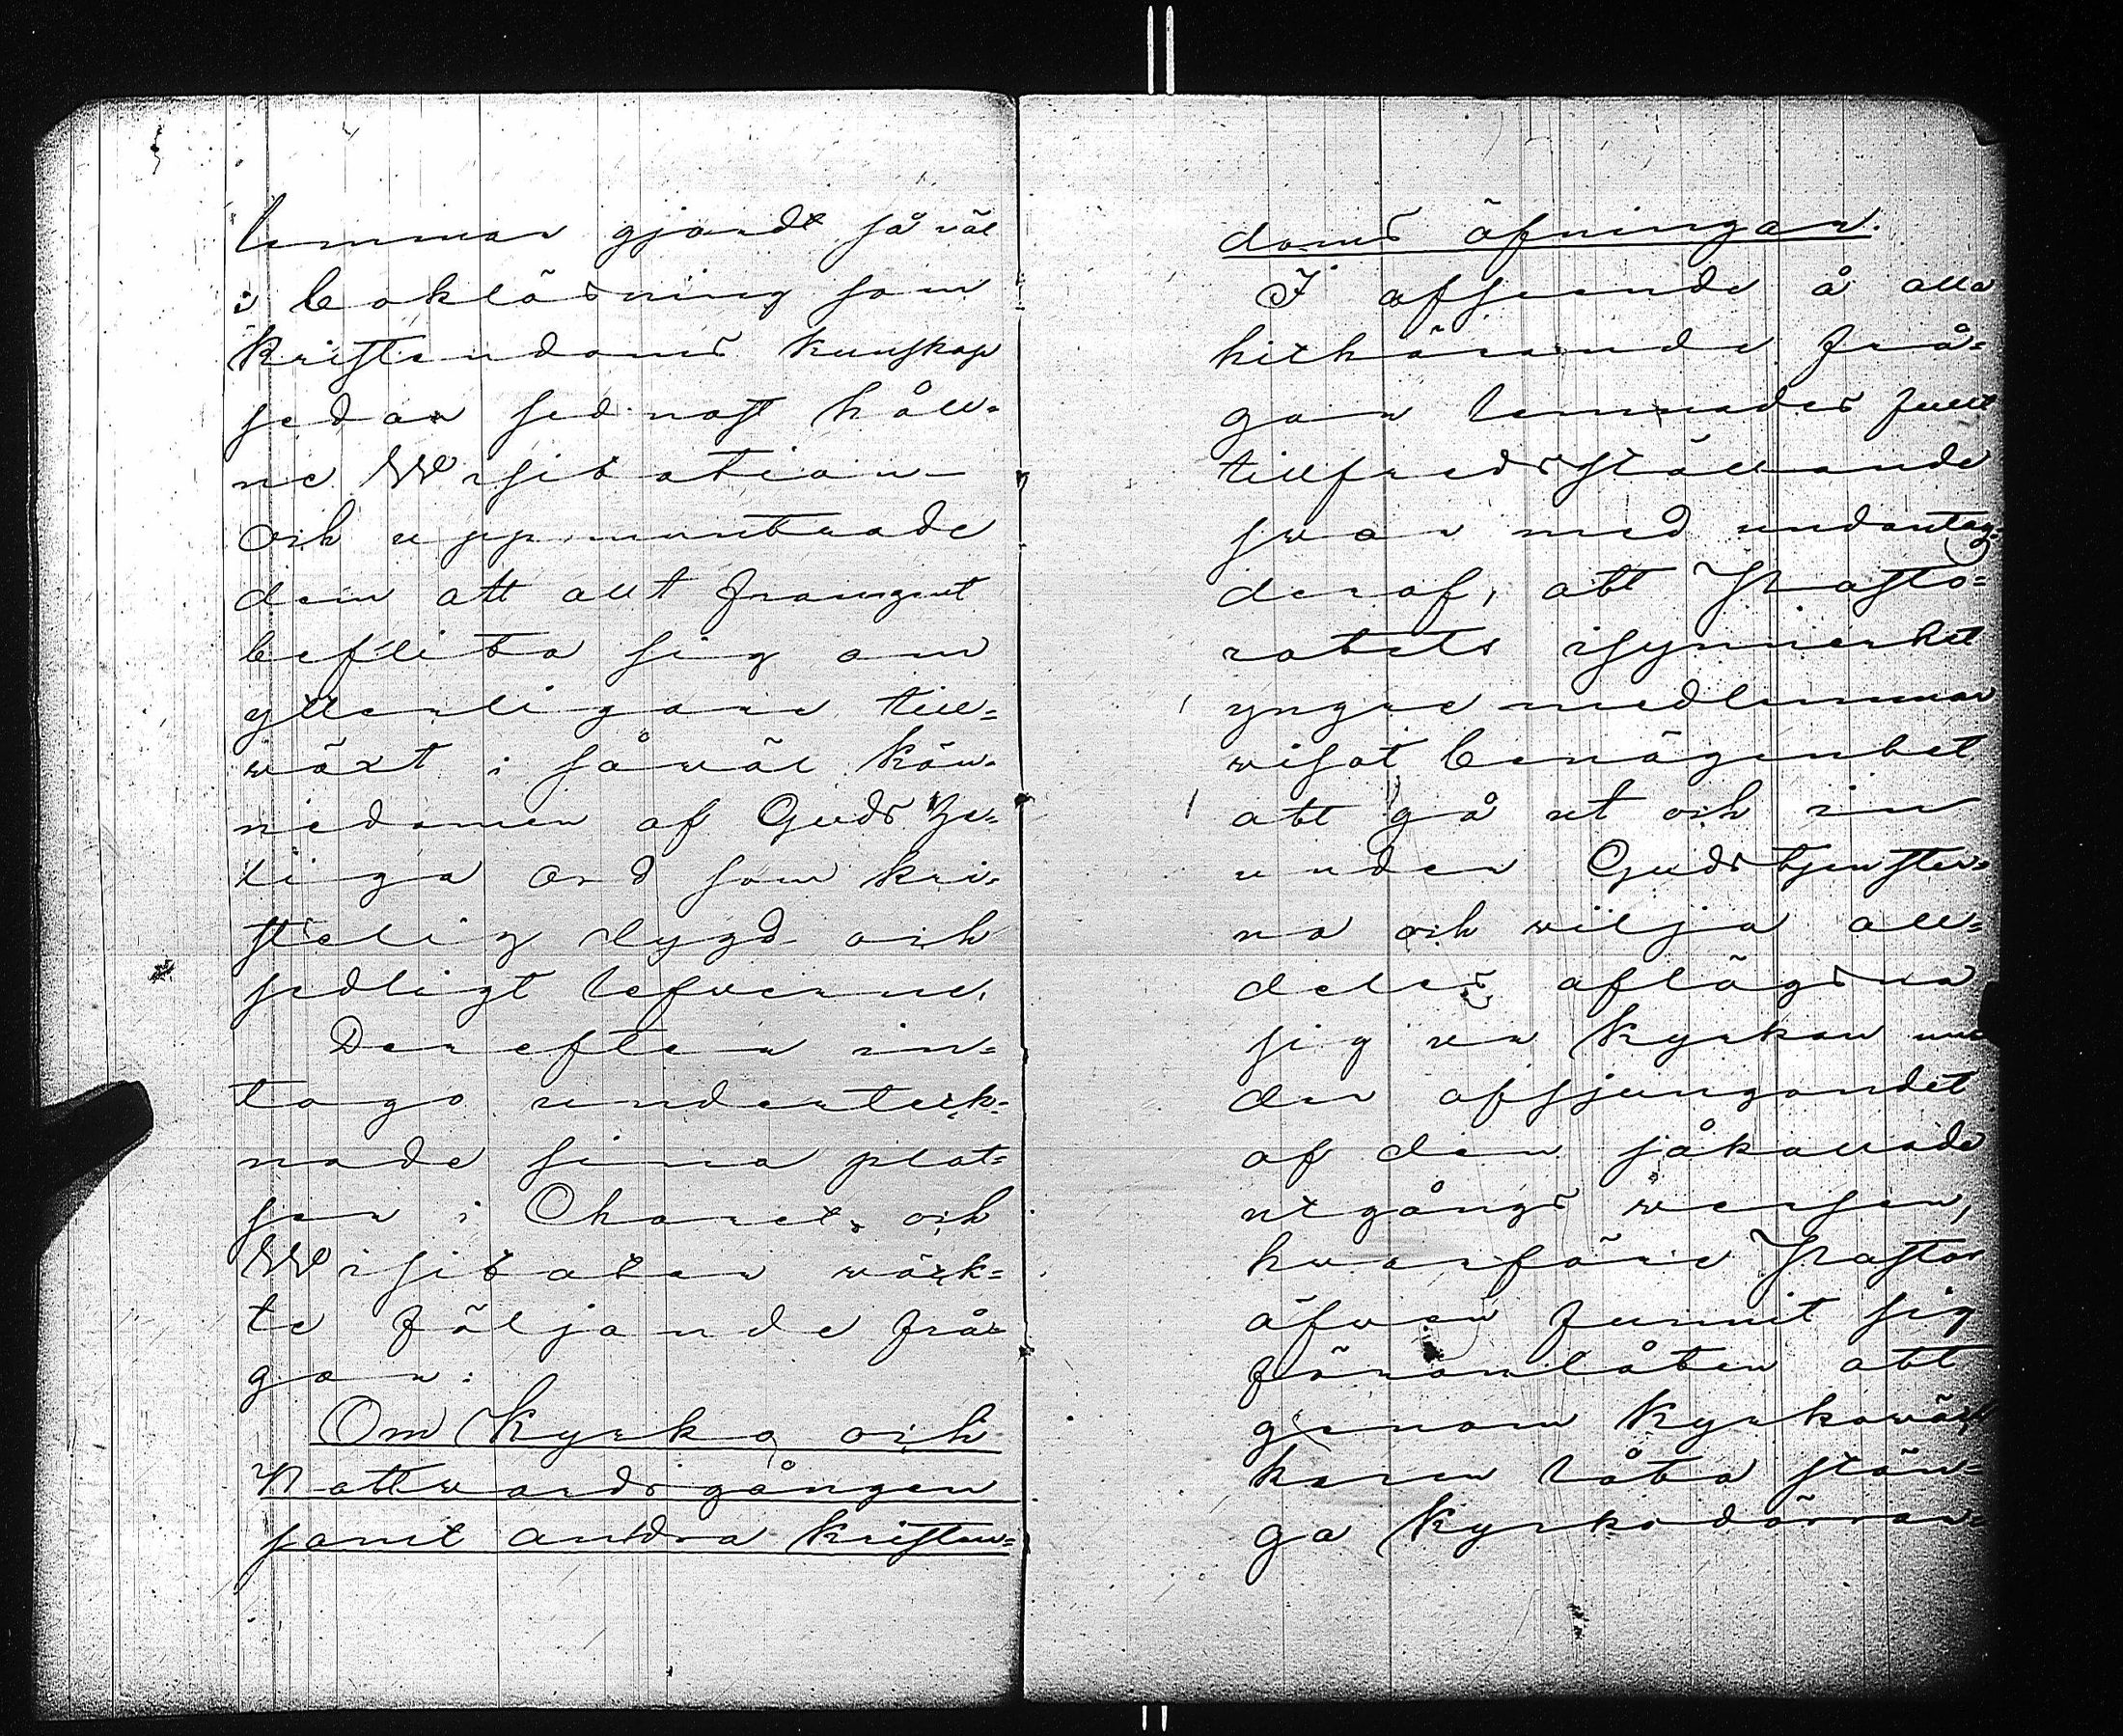 lemmar gjordt så väl
i bokläsning som
kristendoms kunskap
sedan sednast håll-
ne Wisitation
och uppmuntrade
dem att allt framgent
beflita sig om
ytterligare till-
wäxt i såwäl kän-
nedomen af Guds he-
liga ord som kri-
stelig dygd och
sedligt lefwerne.
Derefter in-
togo underteck-
nade sina plat-
ser i Choret, och
Wisitator wäck-
te följande frå-
gor:
Om Kyrko och
Nattwardsgången
samt andra kristen-
doms öfningar.
I afseende å alla
hithörande frå-
gor lemnades fullt
tillfredsställande
swar med undantag
deraf, att Pasto-
ratets isynnerhet
yngre medlemmar
wisat benägenhet
att gå ut och in
under Gudstjenster-
na och wilja all-
deles aflägsna
sig ur Kyrkan un-
der afsjungandet
af den såkallade
utgångs versen,
hwarföre Pastor
äfwen funnit sig
föranlåten att
genom Kyrkowäk-
karen låta stän-
ga Kyrkodörrar-